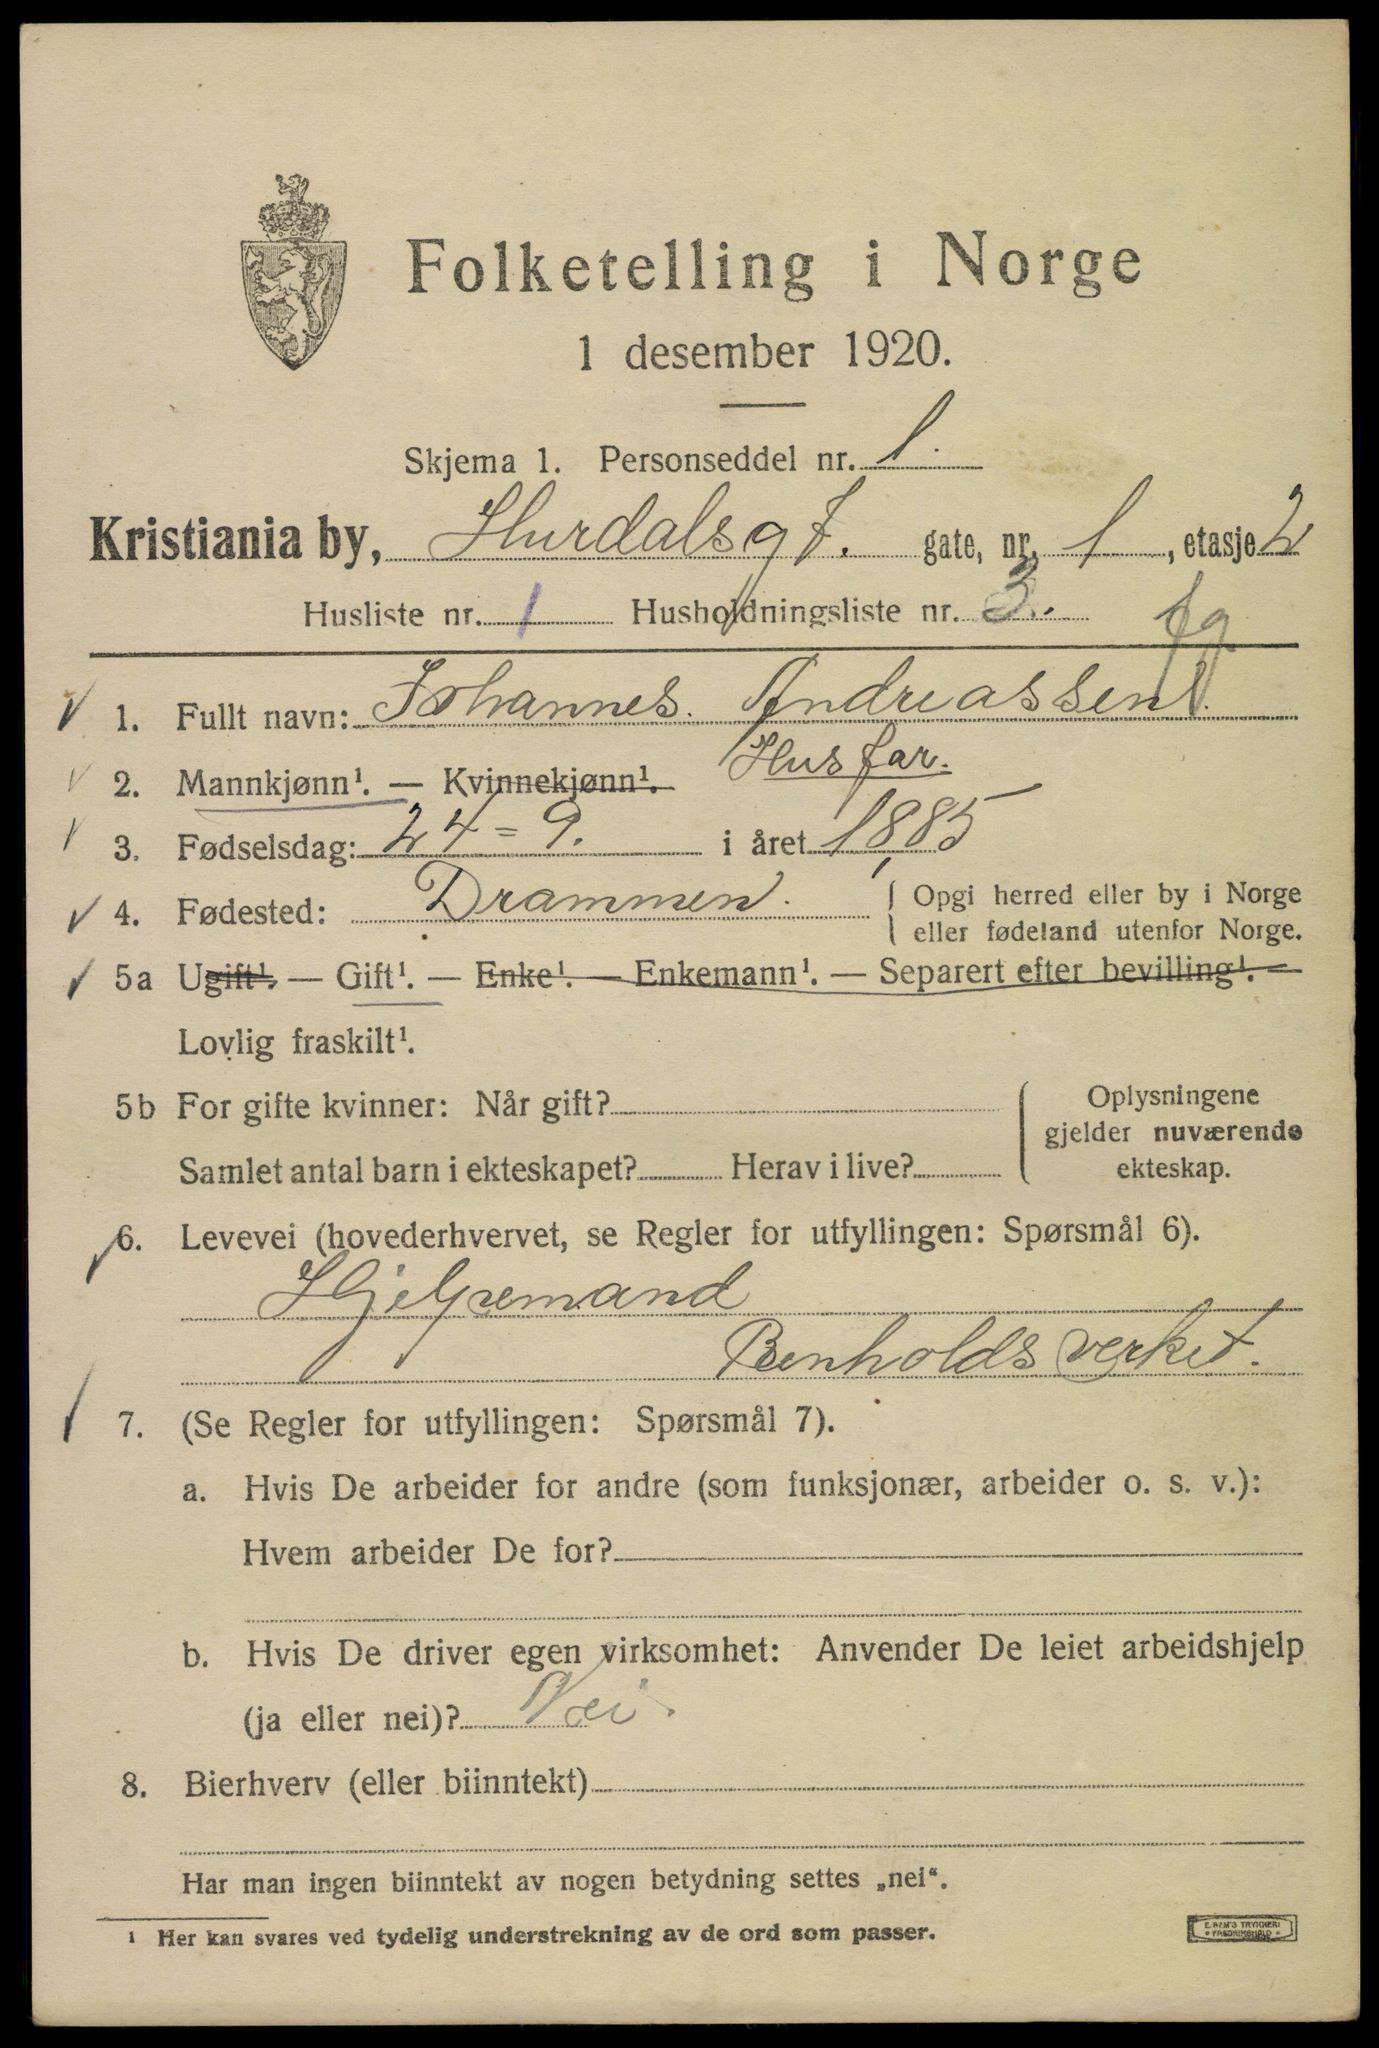 Folketelling i Norge
1 desember 1920.
Skjema 1. Personseddel nr. 1.
Kristiania by, Hurdalsgt. gate, nr. 1, etasje 2
Husliste nr. 1 Husholdningsliste nr. 3.
fg.
1. Fullt navn: Johannes. Andreassen.
2. Mannkjønn¹. — Kvinnekjønn¹. Husfar.
3. Fødselsdag: 24 = 9. i året 1885
4. Fødested: Drammen. Opgi herred eller by i Norge
eller fødeland utenfor Norge.
5a Ugift¹. — Gift¹. — Enke¹. — Enkemann¹. — Separert efter bevilling¹. —
Lovlig fraskilt¹.
5b For gifte kvinner: Når gift? Oplysningene
gjelder nuværende
Samlet antal barn i ekteskapet? Herav i live? ekteskap.
6. Levevei (hovederhvervet, se Regler for utfyllingen: Spørsmål 6).
Hjelpemand
Renholdsverket.
7. (Se Regler for utfyllingen: Spørsmål 7).
a. Hvis De arbeider for andre (som funksjonær, arbeider o. s. v.):
Hvem arbeider De for?
b. Hvis De driver egen virksomhet: Anvender De leiet arbeidshjelp
(ja eller nei)? Nei.
8. Bierhverv (eller biinntekt)
Har man ingen biinntekt av nogen betydning settes „nei“.
¹ Her kan svares ved tydelig understrekning av de ord som passer.
E. RAM'S TRYKKERI
FREDRIKSHALD